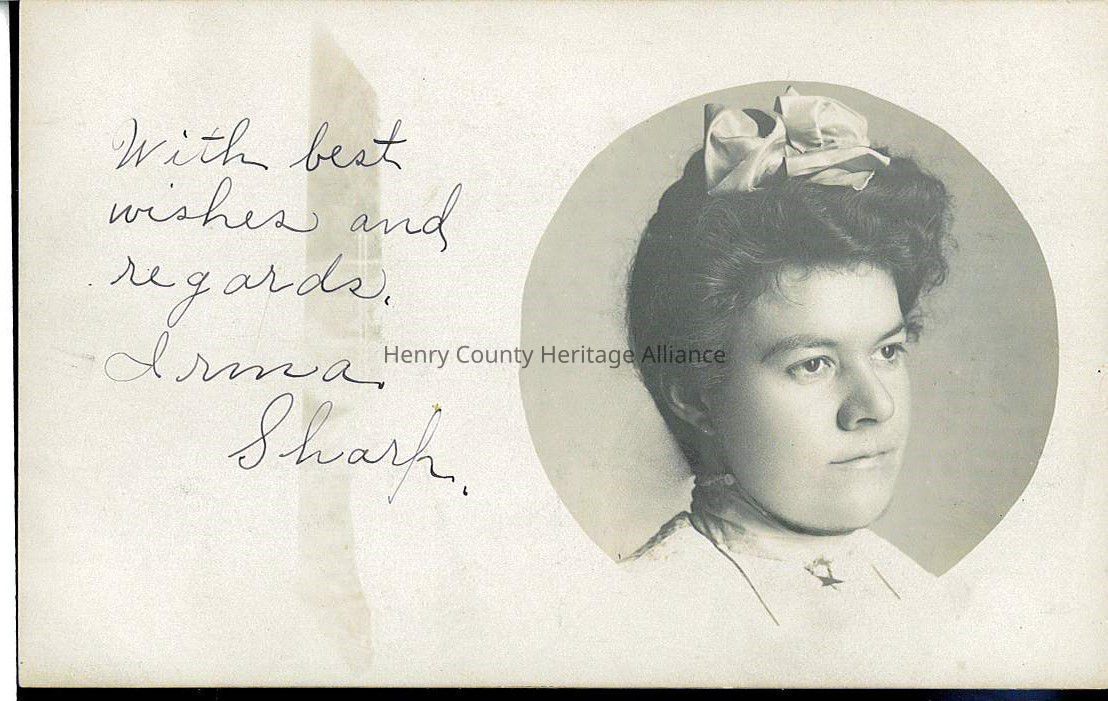 With best
wishes and
regards.
Irma.
Sharp.
Henry County Heritage Alliance